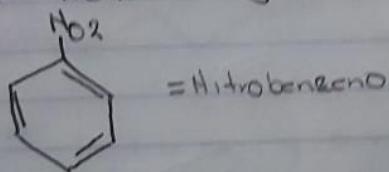 NO2
=Nitrobenzeno